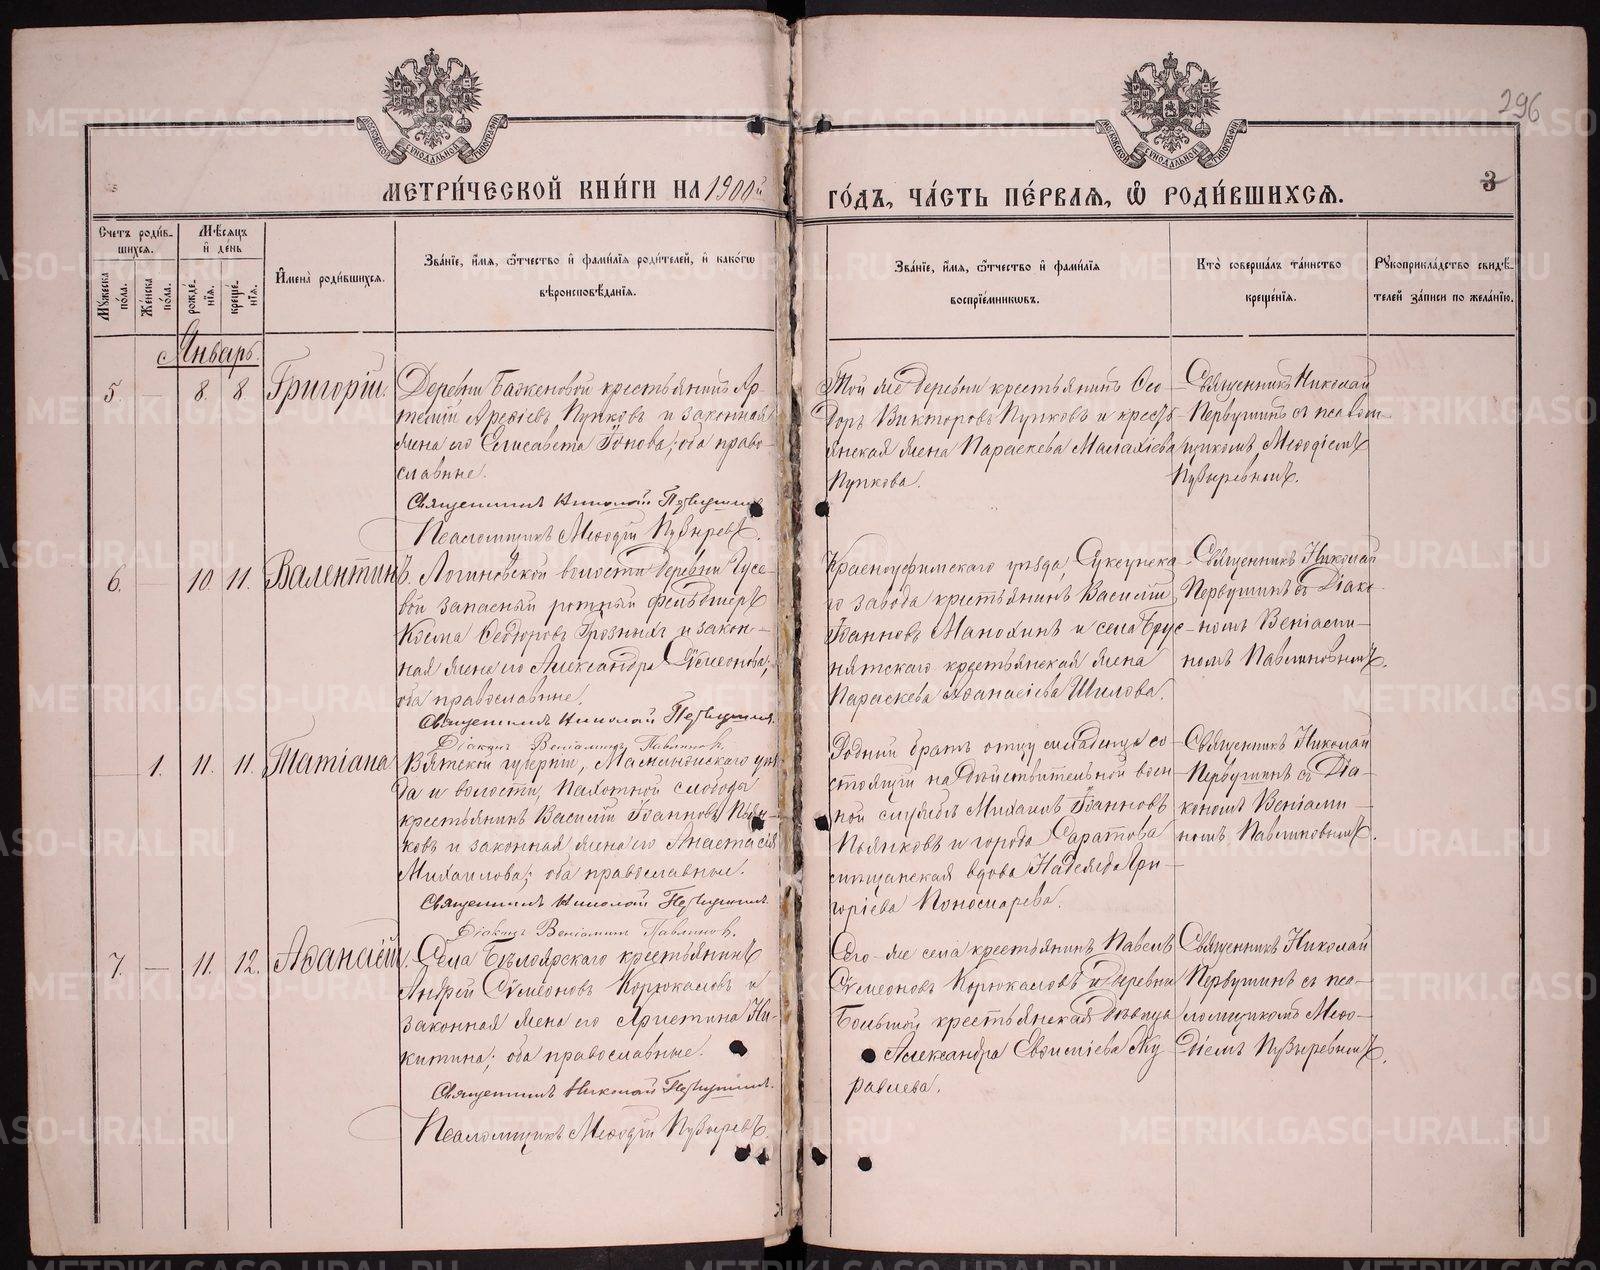 296
3
МОСКОВСКОЙ СѴНОДАЛЬНОЙ ТИПОГРАФІИ
МОСКОВСКОЙ СѴНОДАЛЬНОЙ ТИПОГРАФІИ
МЕТРИ́ЧЕСКОЙ КНИ́ГИ НА 1900й
ГО́ДЪ, ЧА́СТЬ ПЕ́РВАЯ, Ѡ҆ РОДИ́ВШИХСЯ.
Счетъ роди́в-
шихся.
Мѣсяцъ
и҆ де́нь
Мꙋ́жеска по́ла.
Же́нска по́ла.
рожде́нїя.
креще́нїя.
И҆мена̀ роди́вшихся.
Зва́нїе, и҆́мя, ѻ҆́тчество и҆ фами́лїя роди́телей, и҆ како́гѡ
вѣроисповѣ́данїя.
Зва́нїе, и҆́мя, ѻ҆́тчество и҆ фами́лїя
воспрїе́мникѡвъ.
Кто̀ соверша́лъ та́инство
креще́нїя.
Рꙋкоприкла́дство свидѣ́-
телей за́писи по жела́нїю.
Январь.
5 — 8. 8 Григорій.
Деревни Баженовой крестьянинъ Ар-
темій Арефіевъ Пупковъ и законная
жена его Елисавета Іонова; оба право-
славные.
Священникъ Николай Первушинъ
Псаломщикъ Меѳодій Пузыревъ.
Той же деревни крестьянинъ Ѳео-
доръ Викторовъ Пупковъ и кресть-
янская жена Параскева Малахіева
Пупкова.
Священникъ Николай
Первушинъ съ псалом-
щикомъ Меѳодіемъ
Пузыревымъ.
6. — 10. 11. Валентинъ.
Логиновской волости деревни Гусе-
вой запасный ротный фельдшеръ
Косма Ѳедоровъ Грозныхъ и закон-
ная жена его Александра Сѵмеонова;
оба православные.
Священникъ Николай Первушинъ.
Діаконъ Веніаминъ Павлиновъ.
Красноуфимскаго уѣзда, Суксунска-
го завода крестьянинъ Василій
Іоанновъ Манохинъ и села Брус-
нятскаго крестьянская жена
Параскева Аѳанасіева Шилова.
Священникъ Николай
Первушинъ съ Діако-
номъ Веніами-
номъ Павлиновымъ.
1. 11. 11. Татіана
Вятской губерніи, Малмыжскаго уѣз-
да и волости, Пахотной слободы
крестьянинъ Василій Іоанновъ Пьян-
ковъ и законная жена его Анастасія
Михаилова; оба православные.
Священникъ Николай Первушинъ.
Діаконъ Веніаминъ Павлиновъ.
Родной братъ отцу младенца со-
стоящій на дѣйствительной воен-
ной службѣ Михаилъ Іоанновъ
Пьянковъ и города Саратова
мѣщанская вдова Надежда Гри-
горіева Пономарева.
Священникъ Николай
Первушинъ съ Діа-
кономъ Веніами-
номъ Павлиновымъ.
7. — 11. 12. Аѳанасій.
Села Бѣлоярскаго крестьянинъ
Андрей Сѵмеоновъ Корюкаловъ и
законная жена его Христина Ни-
китина; оба православные.
Священникъ Николай Первушинъ.
Псаломщикъ Меѳодій Пузыревъ.
Сего-же села крестьянинъ Павелъ
Сѵмеоновъ Корюкаловъ и деревни
Большой крестьянская дѣвица
Александра Евѳиміева Жу
равлева.
Священникъ Николай
Первушинъ съ пса-
ломщикомъ Меѳо-
діемъ Пузыревымъ.
METRIKI.GASO-URAL.RU